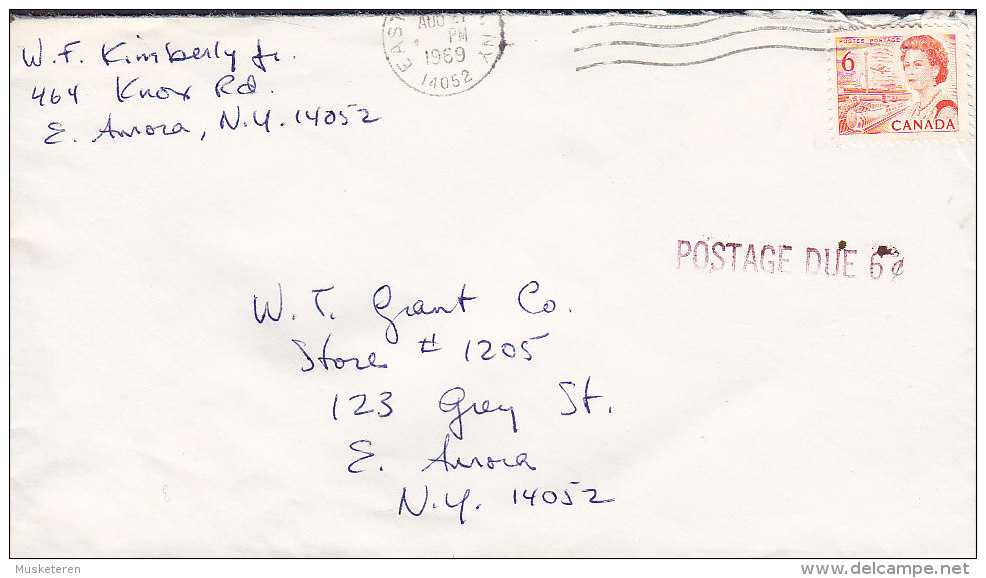 W. F. Kimberly Jr.
464 Knox Rd.
E. Aurora, N.Y. 14052
EAST
NY
AUG
PM
1969
14052
POSTES POSTAGE
6
CANADA
POSTAGE DUE 6¢
W. T. Grant Co.
Store # 1205
123 Grey St.
E. Aurora
N.Y. 14052
Musketeren
delcampe.net